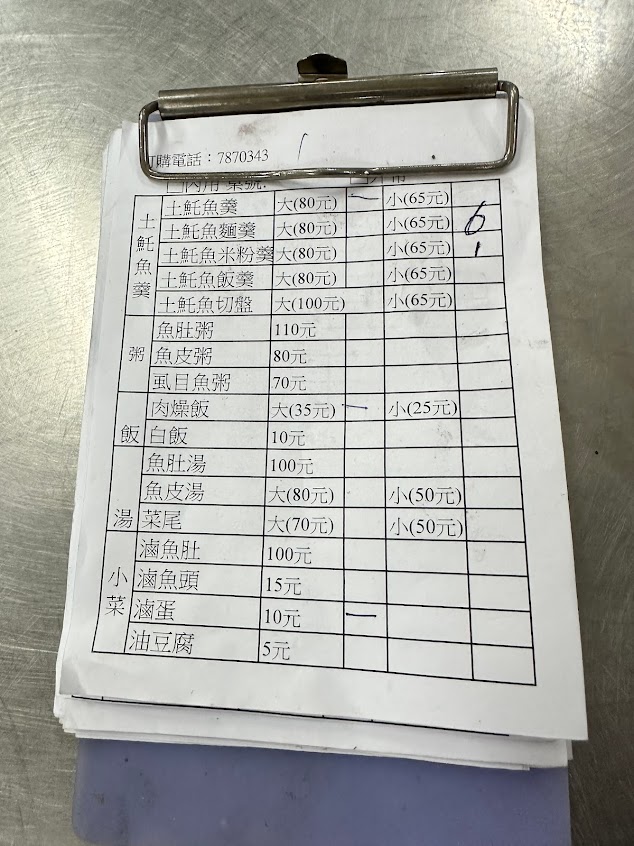 訂購電話：7870343
內用 桌號:
土魠魚羹
土魠魚羹 大(80元) 一 小(65元)
土魠魚麵羹 大(80元) 小(65元) 6
土魠魚米粉羹 大(80元) 小(65元) 1
土魠魚飯羹 大(80元) 小(65元)
土魠魚切盤 大(100元) 小(65元)
粥
魚肚粥 110元
魚皮粥 80元
虱目魚粥 70元
飯
肉燥飯 大(35元) 一 小(25元)
白飯 10元
湯
魚肚湯 100元
魚皮湯 大(80元) 小(50元)
菜尾 大(70元) 小(50元)
小菜
滷魚肚 100元
滷魚頭 15元
滷蛋 10元 一
油豆腐 5元